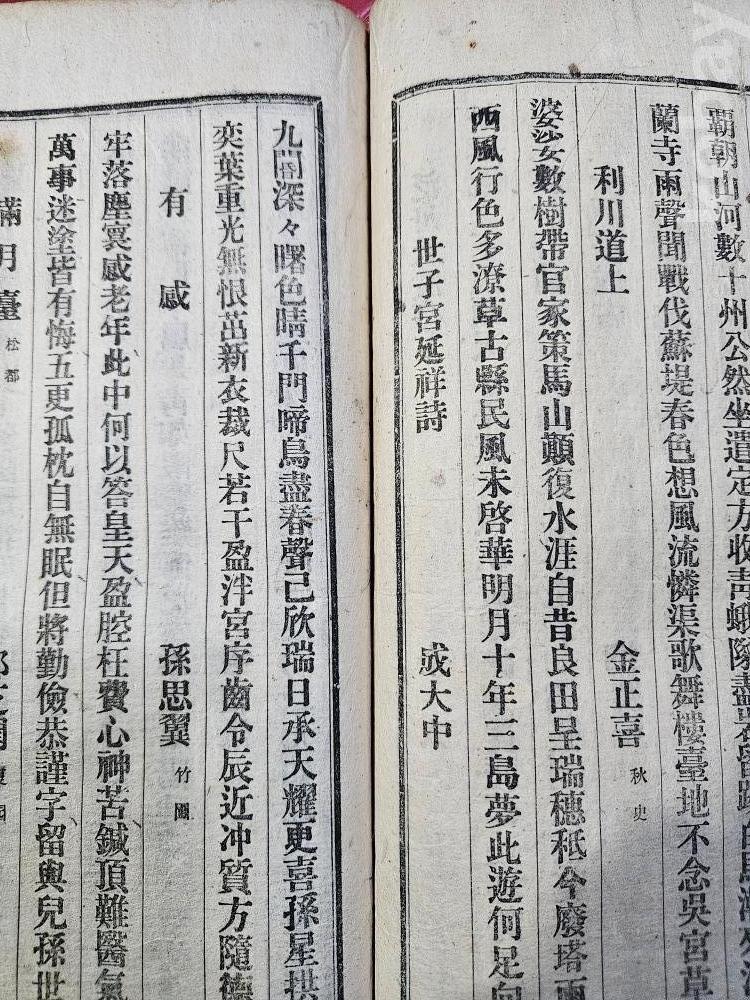 覇朝山河數十州公然坐遣定方收靑蛾隊盡
蘭寺雨聲聞戰伐蘇堤春色想風流憐渠歌舞樓臺地不念吳宮草
利川道上 金正喜 秋史
婆娑女數樹帶官家策馬山顚復水涯自昔良田呈瑞穗秪今廢塔雨
西風行色多潦草古縣民風未啓華明月十年三島夢此遊何足向
世子宮延祥詩 成大中
九閽深々曙色晴千門啼鳥盡春聲已欣瑞日承天耀更喜孫星拱
奕葉重光無恨茁新衣裁尺若干盈泮宮序齒令辰近冲質方隨德
有感 孫思翼 竹圃
牢落塵寰感老年此中何以答皇天盈腔枉費心神苦鍼頂難醫氣
萬事迷塗皆有悔五更孤枕自無眠但將勤儉恭謹字留與兒孫世
滿月臺 松都